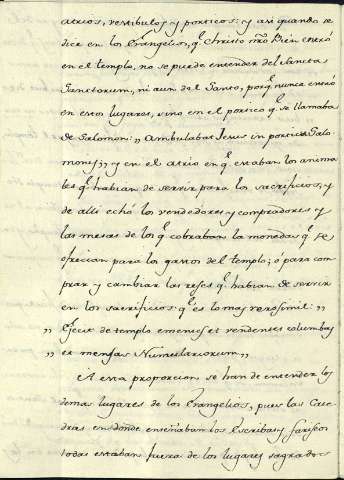 atrios, vestibulos y porticos: y asi quando se
dice en los Evangelios, q̃ Christo nr̃o Bien entró
en el templo, no se puede entender del Sancta
Sanctorum, ni aun del Santo, porq̃ nunca entró
en estos lugares, sino en el portico q̃ se llamaba
de Salomon: „ Ambulabat Jesus in porticu Salo
monis „ y en el atrio en q̃ estaban los anima
les q̃ habian de servir para los sacrificios, y
de alli echó los vendedores y compradores y
las mesas de los q̃ cobraban la moneda q̃ se
ofrecian para los gastos del templo; ó para com
prar y cambiar las reses q̃ habian de servir
en los sacrificios q̃ es lo mas verosimil: „
„ Ejecit de templo ementes et vendentes columbas
„ et mensas Numulariorum „
A esta proporcion se han de entender los
demas lugares de los Evangelios, pues las Cate
dras en donde enseñaban los Escribas y fariseos
todas estaban fuera de los lugares sagrados